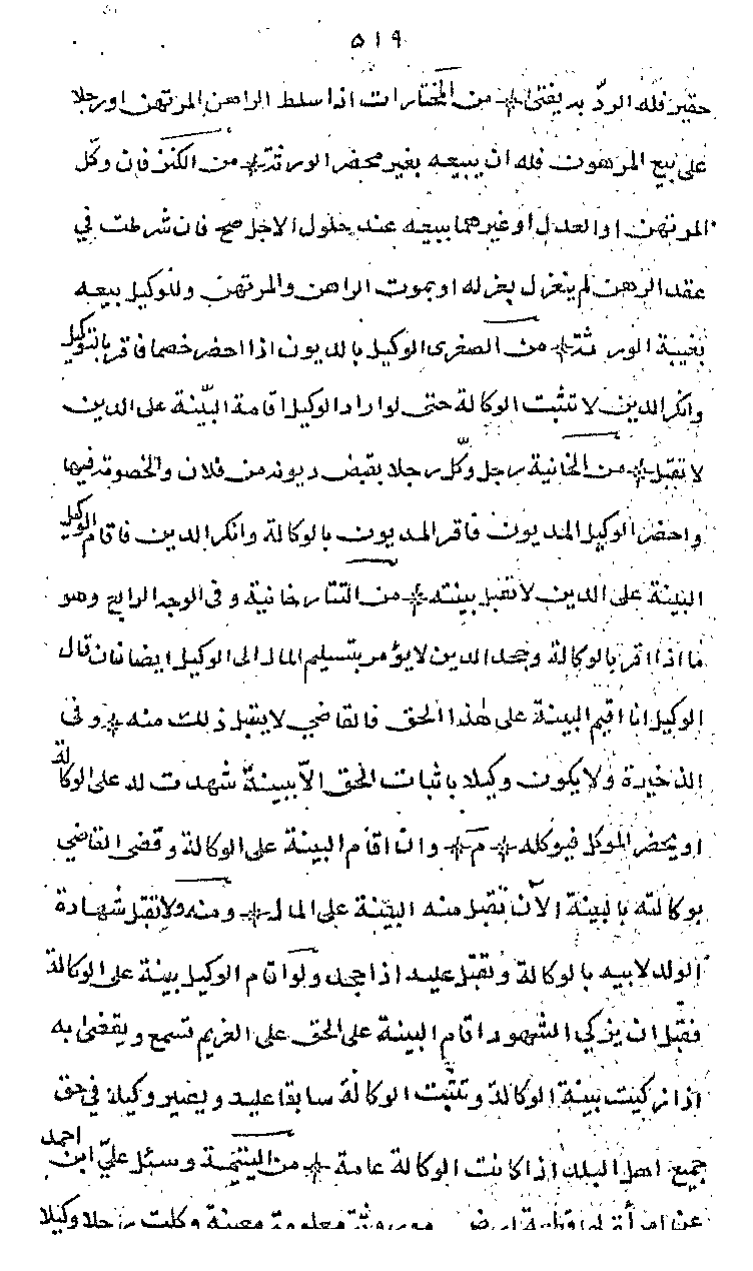 ٥١٩
حقير فله الردّ به يفتى * من المختارات اذا سلط الراهن المرتهن او رجلا
على بيع المرهون فله ان يبيعه بغير محضر الورثة * من الكنز فان وكّل
المرتهن او العدل او غيرهما ببيعه عند حلول الاجل صح فان شرطت في
عقد الرهن لم ينعزل بعزله او بموت الراهن والمرتهن وللوكيل بيعه
بغيبة الورثة * من الصغرى الوكيل بالديون اذا احضر خصما فاقر بالتوكيل
وانكر الدين لا تثبت الوكالة حتى لو اراد الوكيل اقامة البيّنة على الدين
لا تقبل * من الخانية رجل وكّل رجلا بقبض ديونه من فلان والخصومة فيها
واحضر الوكيل المديون فاقر المديون بالوكالة وانكر الدين فاقام الوكيل
البينة على الدين لا تقبل بينته * من التتارخانية وفى الوجه الرابع وهو
ما اذا اقر بالوكالة وجحد الدين لا يؤمر بتسليم المال الى الوكيل ايضا فان قال
الوكيل انا اقيم البينة على هذا الحق فالقاضي لا يقبل ذلك منه * وفى
الذخيرة ولا يكون وكيلا باثبات الحق الاّ ببينة شهدت له على الوكالة
او يحضر الموكل فيوكله * م * وان اقام البينة على الوكالة وقضى القاضي
بوكالته بالبينة الآن تقبل منه البينة على المال * ومنه ولا تقبل شهادة
الولد لابيه بالوكالة وتقبل عليه اذا جحد ولو اقام الوكيل بينة على الوكالة
فقبل ان يزكي الشهود اقام البينة على الحق على الغريم تسمع ويقضى به
اذا زكيت بينة الوكالة وتثبت الوكالة سابقا عليه ويصير وكيلا في حق
جميع اهل البلد اذا كانت الوكالة عامة * من اليتيمة وسئل عليّ ابن احمد
عن امرأة لها ارض معلومة معينة وكلت رجلا وكيلا